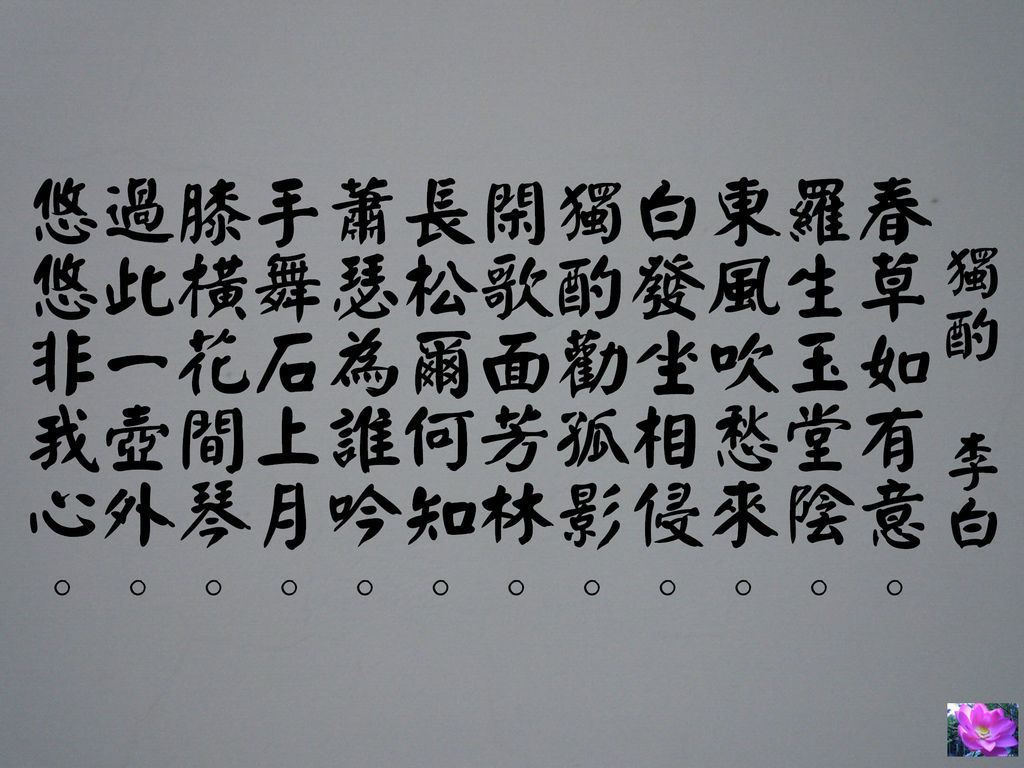 獨酌 李白
春草如有意。
羅生玉堂陰。
東風吹愁來。
白發坐相侵。
獨酌勸孤影。
閑歌面芳林。
長松爾何知。
蕭瑟為誰吟。
手舞石上月。
膝橫花間琴。
過此一壺外。
悠悠非我心。